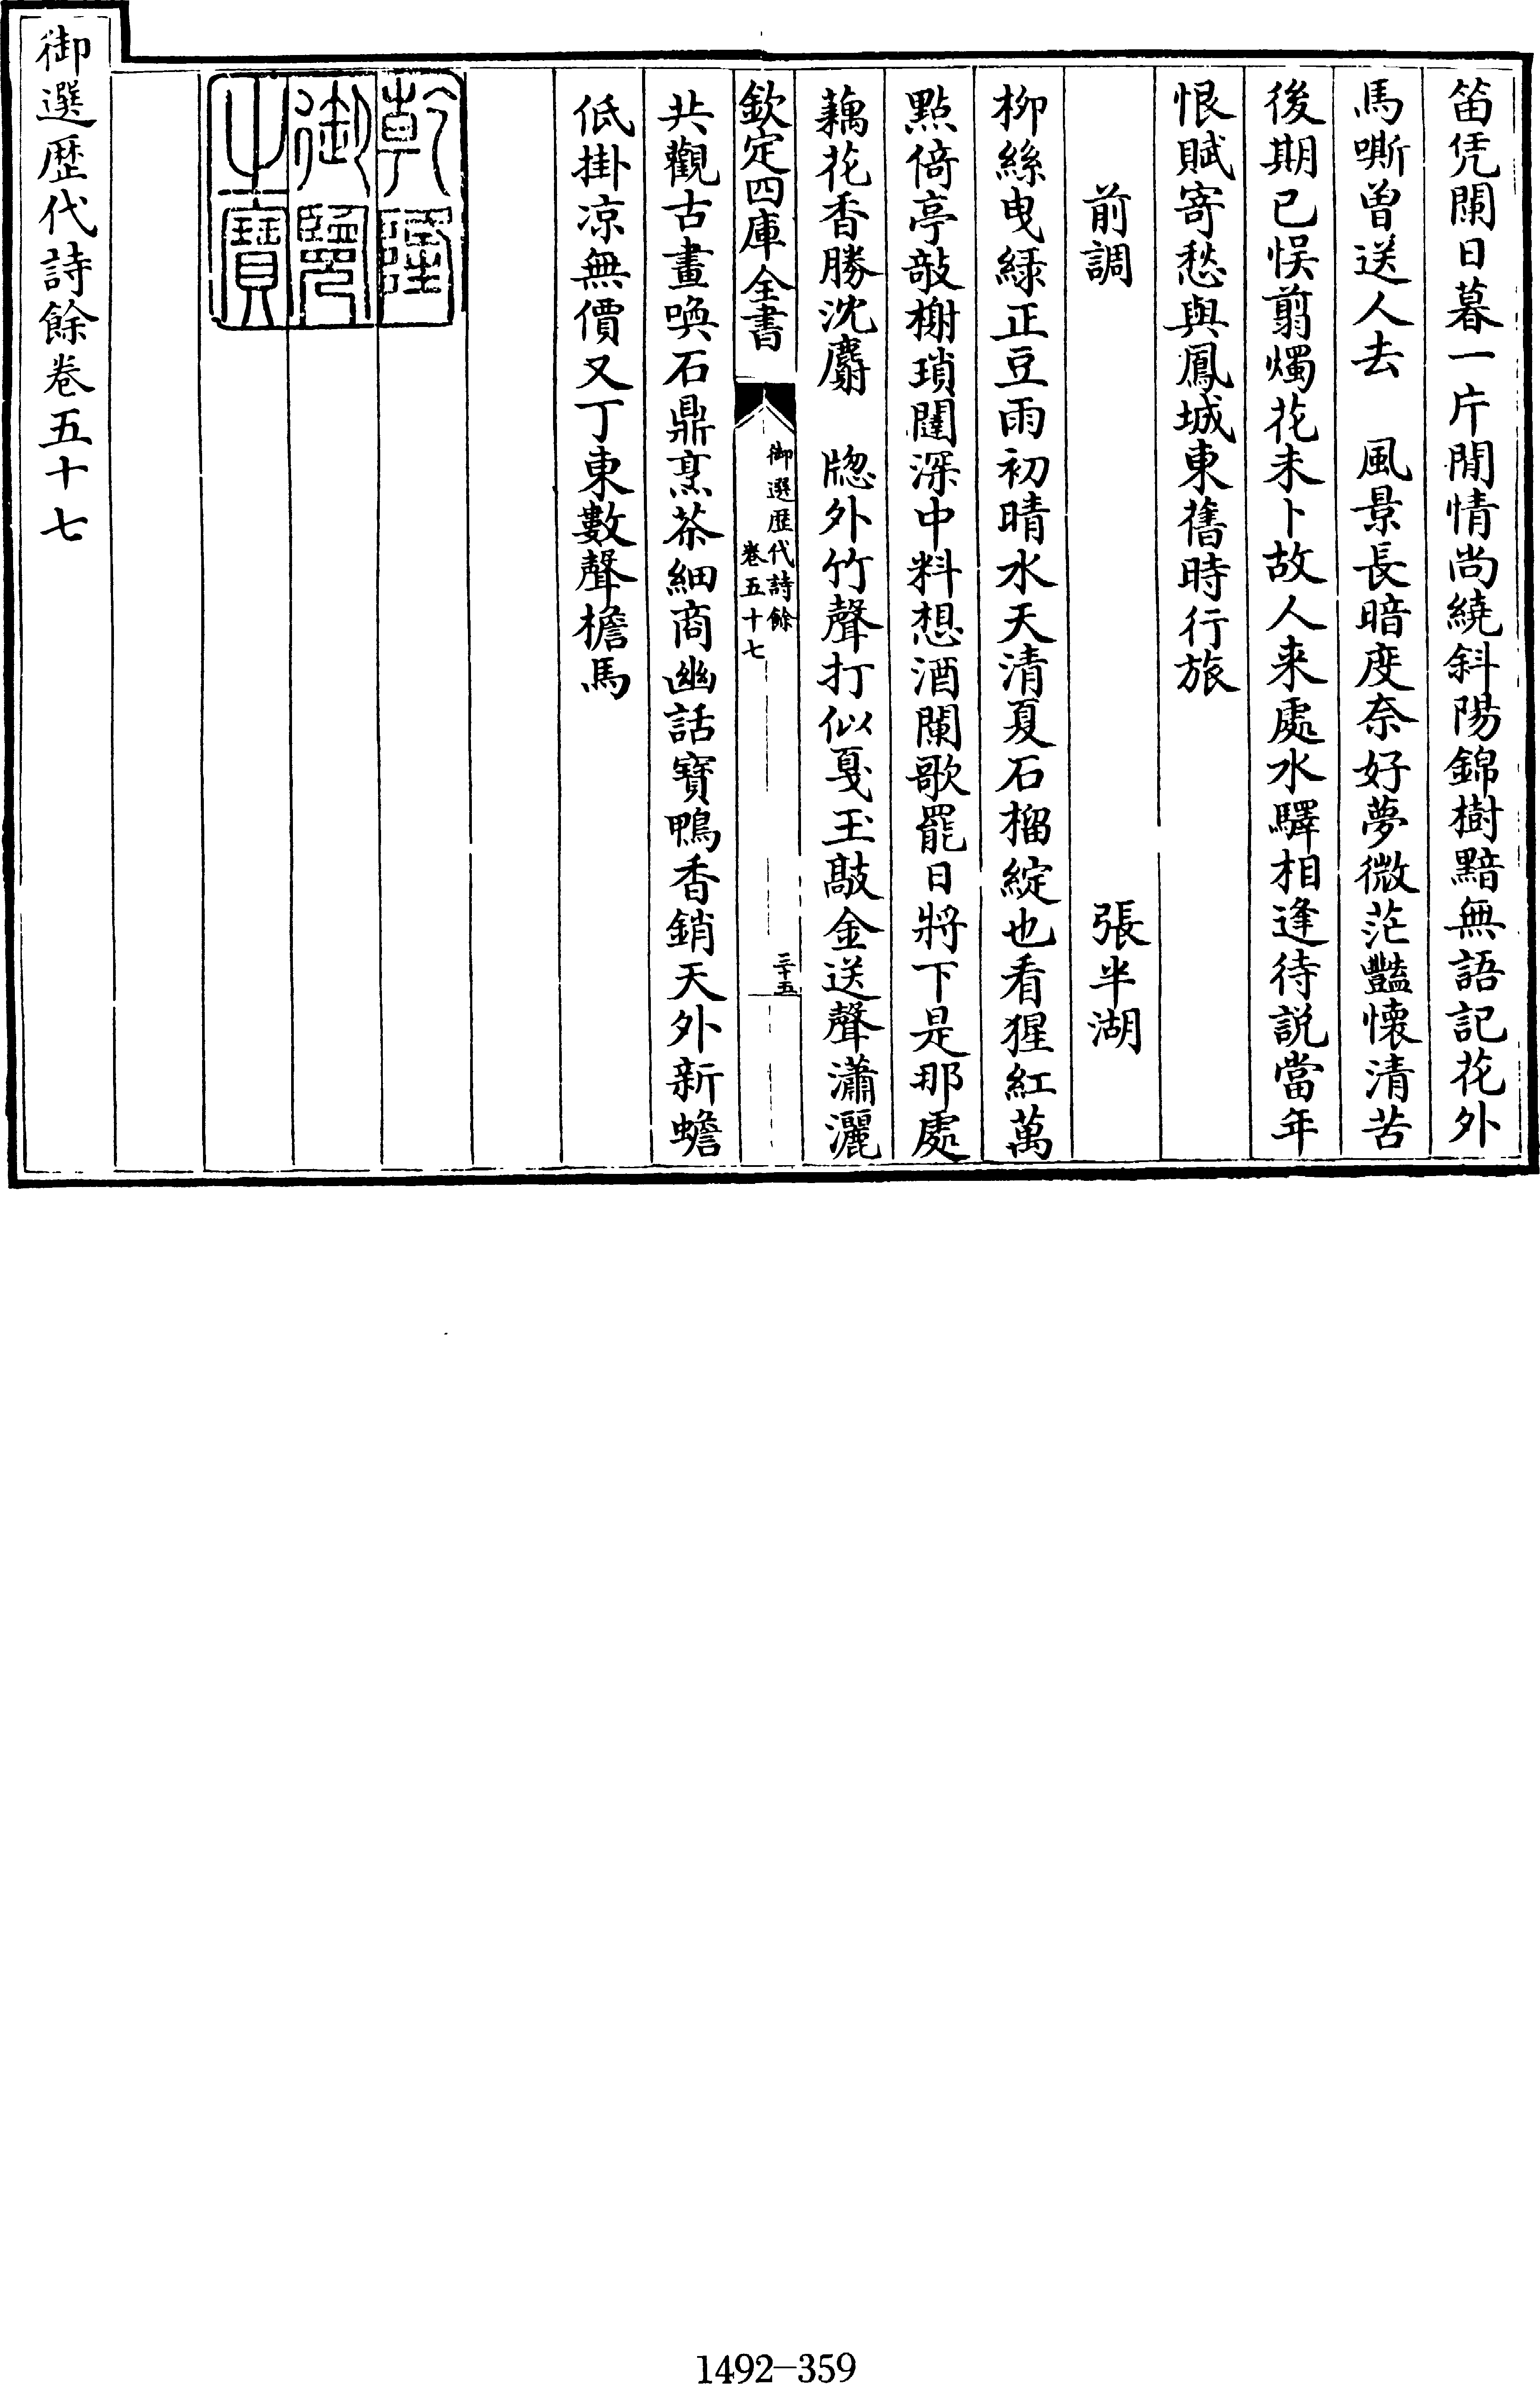 笛凭闌日暮一片閒情尚繞斜陽錦樹黯無語記花外
馬嘶曽送人去　風景長暗度奈好夢微茫豔懐清苦
後期已悮翦燭花未卜故人来處水驛相逢待説當年
恨賦寄愁與鳳城東舊時行旅
前調　張半湖
柳絲曳緑正豆雨初晴水天清夏石榴綻也看猩紅萬
點倚亭敲榭瑣闥深中料想酒闌歌罷日將下是那處
藕花香勝沈麝　牎外竹聲打似戛玉敲金送聲瀟灑
欽定四庫全書
御選歴代詩餘
卷五十七
三十五
共觀古畫喚石鼎烹茶細商幽話寶鴨香銷天外新蟾
低掛凉無價又丁東數聲檐馬
乾隆
御覽
之寶
御選歴代詩餘卷五十七
1492-359